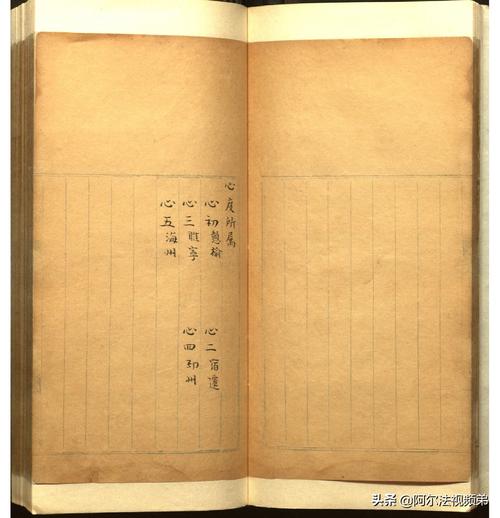 心度所属
心初榆
心二宿遷
心三睢寧
心四邳州
心五海州
头条 @阿尔法视频弟